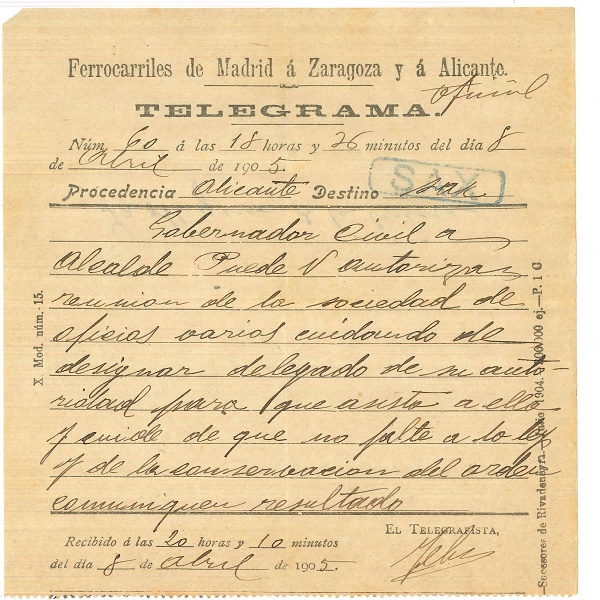 Ferrocarriles de Madrid á Zaragoza y á Alicante.
oficial
TELEGRAMA.
Núm. 60 á las 18 horas y 26 minutos del día 8
de Abril de 1905.
Procedencia Alicante Destino Sax
SAX
Gobernador Civil a
Alcalde Puede V autorizar
reunion de la sociedad de
oficios varios cuidando de
designar delegado de su auto-
ridad para que asista a ella
y cuide de que no falte a la ley
y de la conservacion del orden
comunique resultado
X Mod. núm. 15.
Sucesores de Rivadeneyra.—Junio 1904.
ej.—P. 1 C
EL TELEGRAFISTA,
Recibido á las 20 horas y 10 minutos
del día 8 de Abril de 1905.